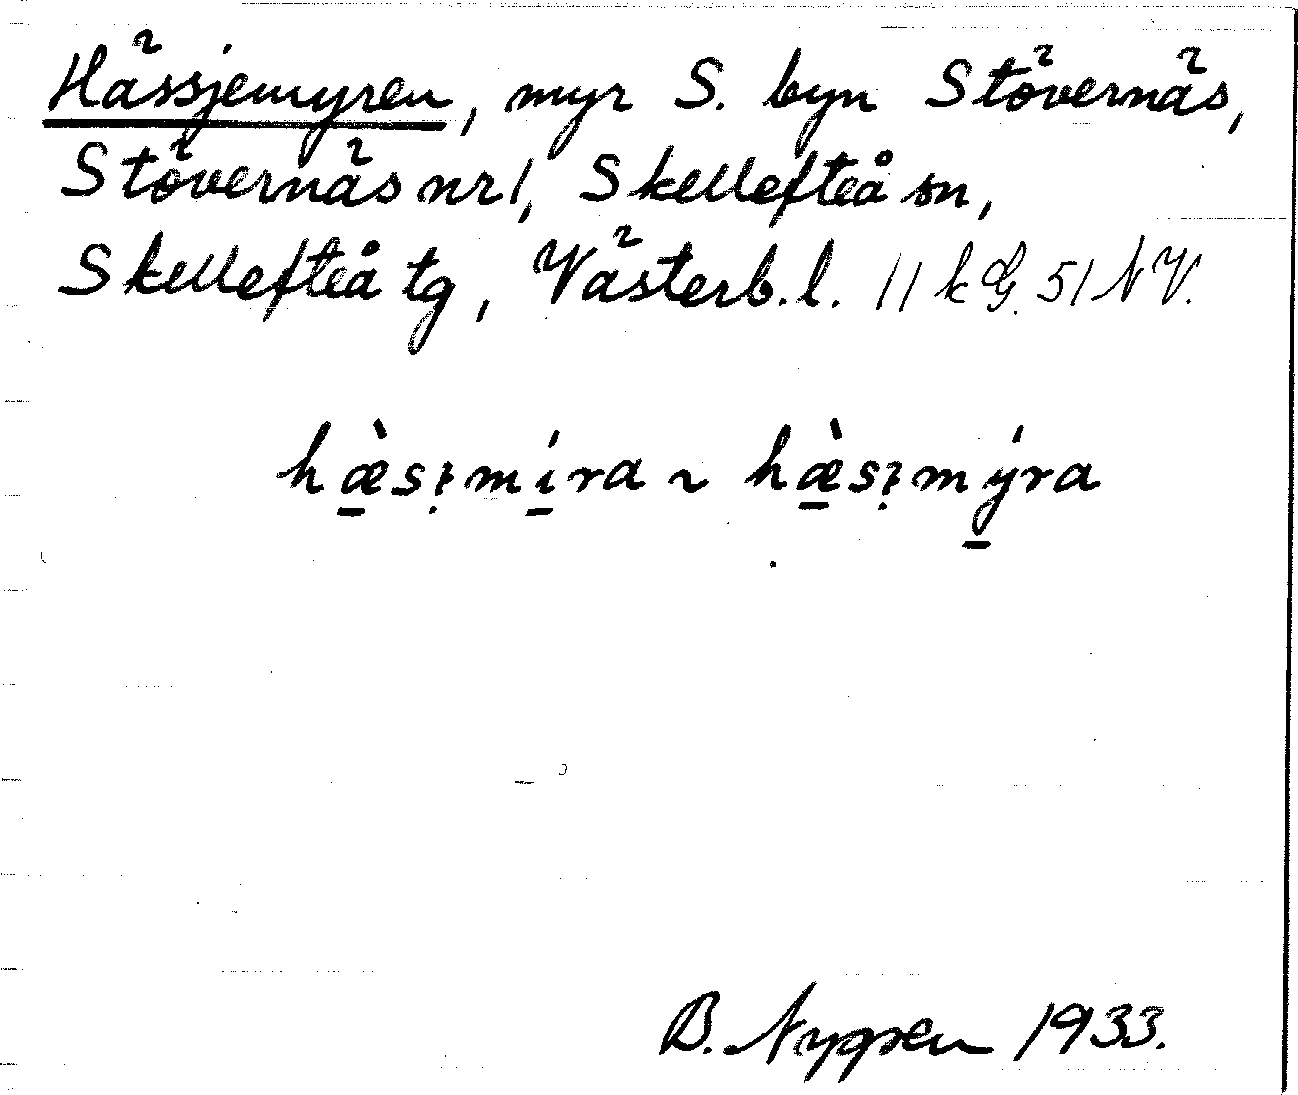 Hässjemyren, myr S. byn Stövernäs,
Stövernäs nr 1, Skellefteå sn,
Skellefteå tg, Västerb. l. 11 k G. 51 NV.
hæ̱̀sımí̱ra ~ hæ̱̀sımý̱ra
B. Nygren 1933.